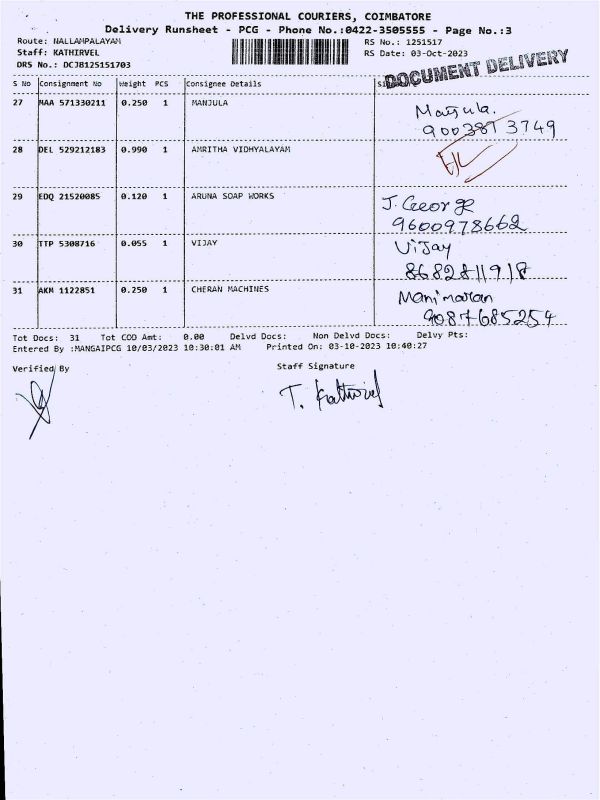 THE PROFESSIONAL COURIERS, COIMBATORE
Delivery Runsheet - PCG - Phone No.:0422-3505555 - Page No.:3
Route: NALLAMPALAYAM RS No.: 1251517
Staff: KATHIRVEL RS Date: 03-Oct-2023
DRS No.: DCJB125151703
DOCUMENT DELIVERY
S No Consignment No Weight PCS Consignee Details
27 MAA 571330211 0.250 1 MANJULA Manjula.
9003873749
28 DEL 529212183 0.990 1 AMRITHA VIDHYALAYAM
29 EDQ 21520085 0.120 1 ARUNA SOAP WORKS J. George
9600978662
30 TTP 5308716 0.055 1 VIJAY Vijay
8682811918
31 AKM 1122851 0.250 1 CHERAN MACHINES Manimaran
9087685254
Tot Docs: 31 Tot COD Amt: 0.00 Delvd Docs: Non Delvd Docs: Delvy Pts:
Entered By :MANGAIPCG 10/03/2023 10:30:01 AM Printed On: 03-10-2023 10:40:27
Verified By Staff Signature
T. Kathirvel